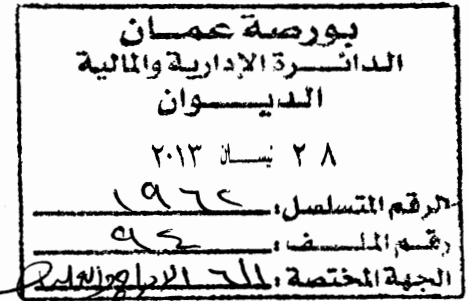 بورصة عمان
الدائرة الإدارية والمالية
الديوان
٢٨ نيسان ٢٠١٣
الرقم المتسلسل: ١٩٦٢
رقم الملف: ٩٤
الجهة المختصة: الادراج